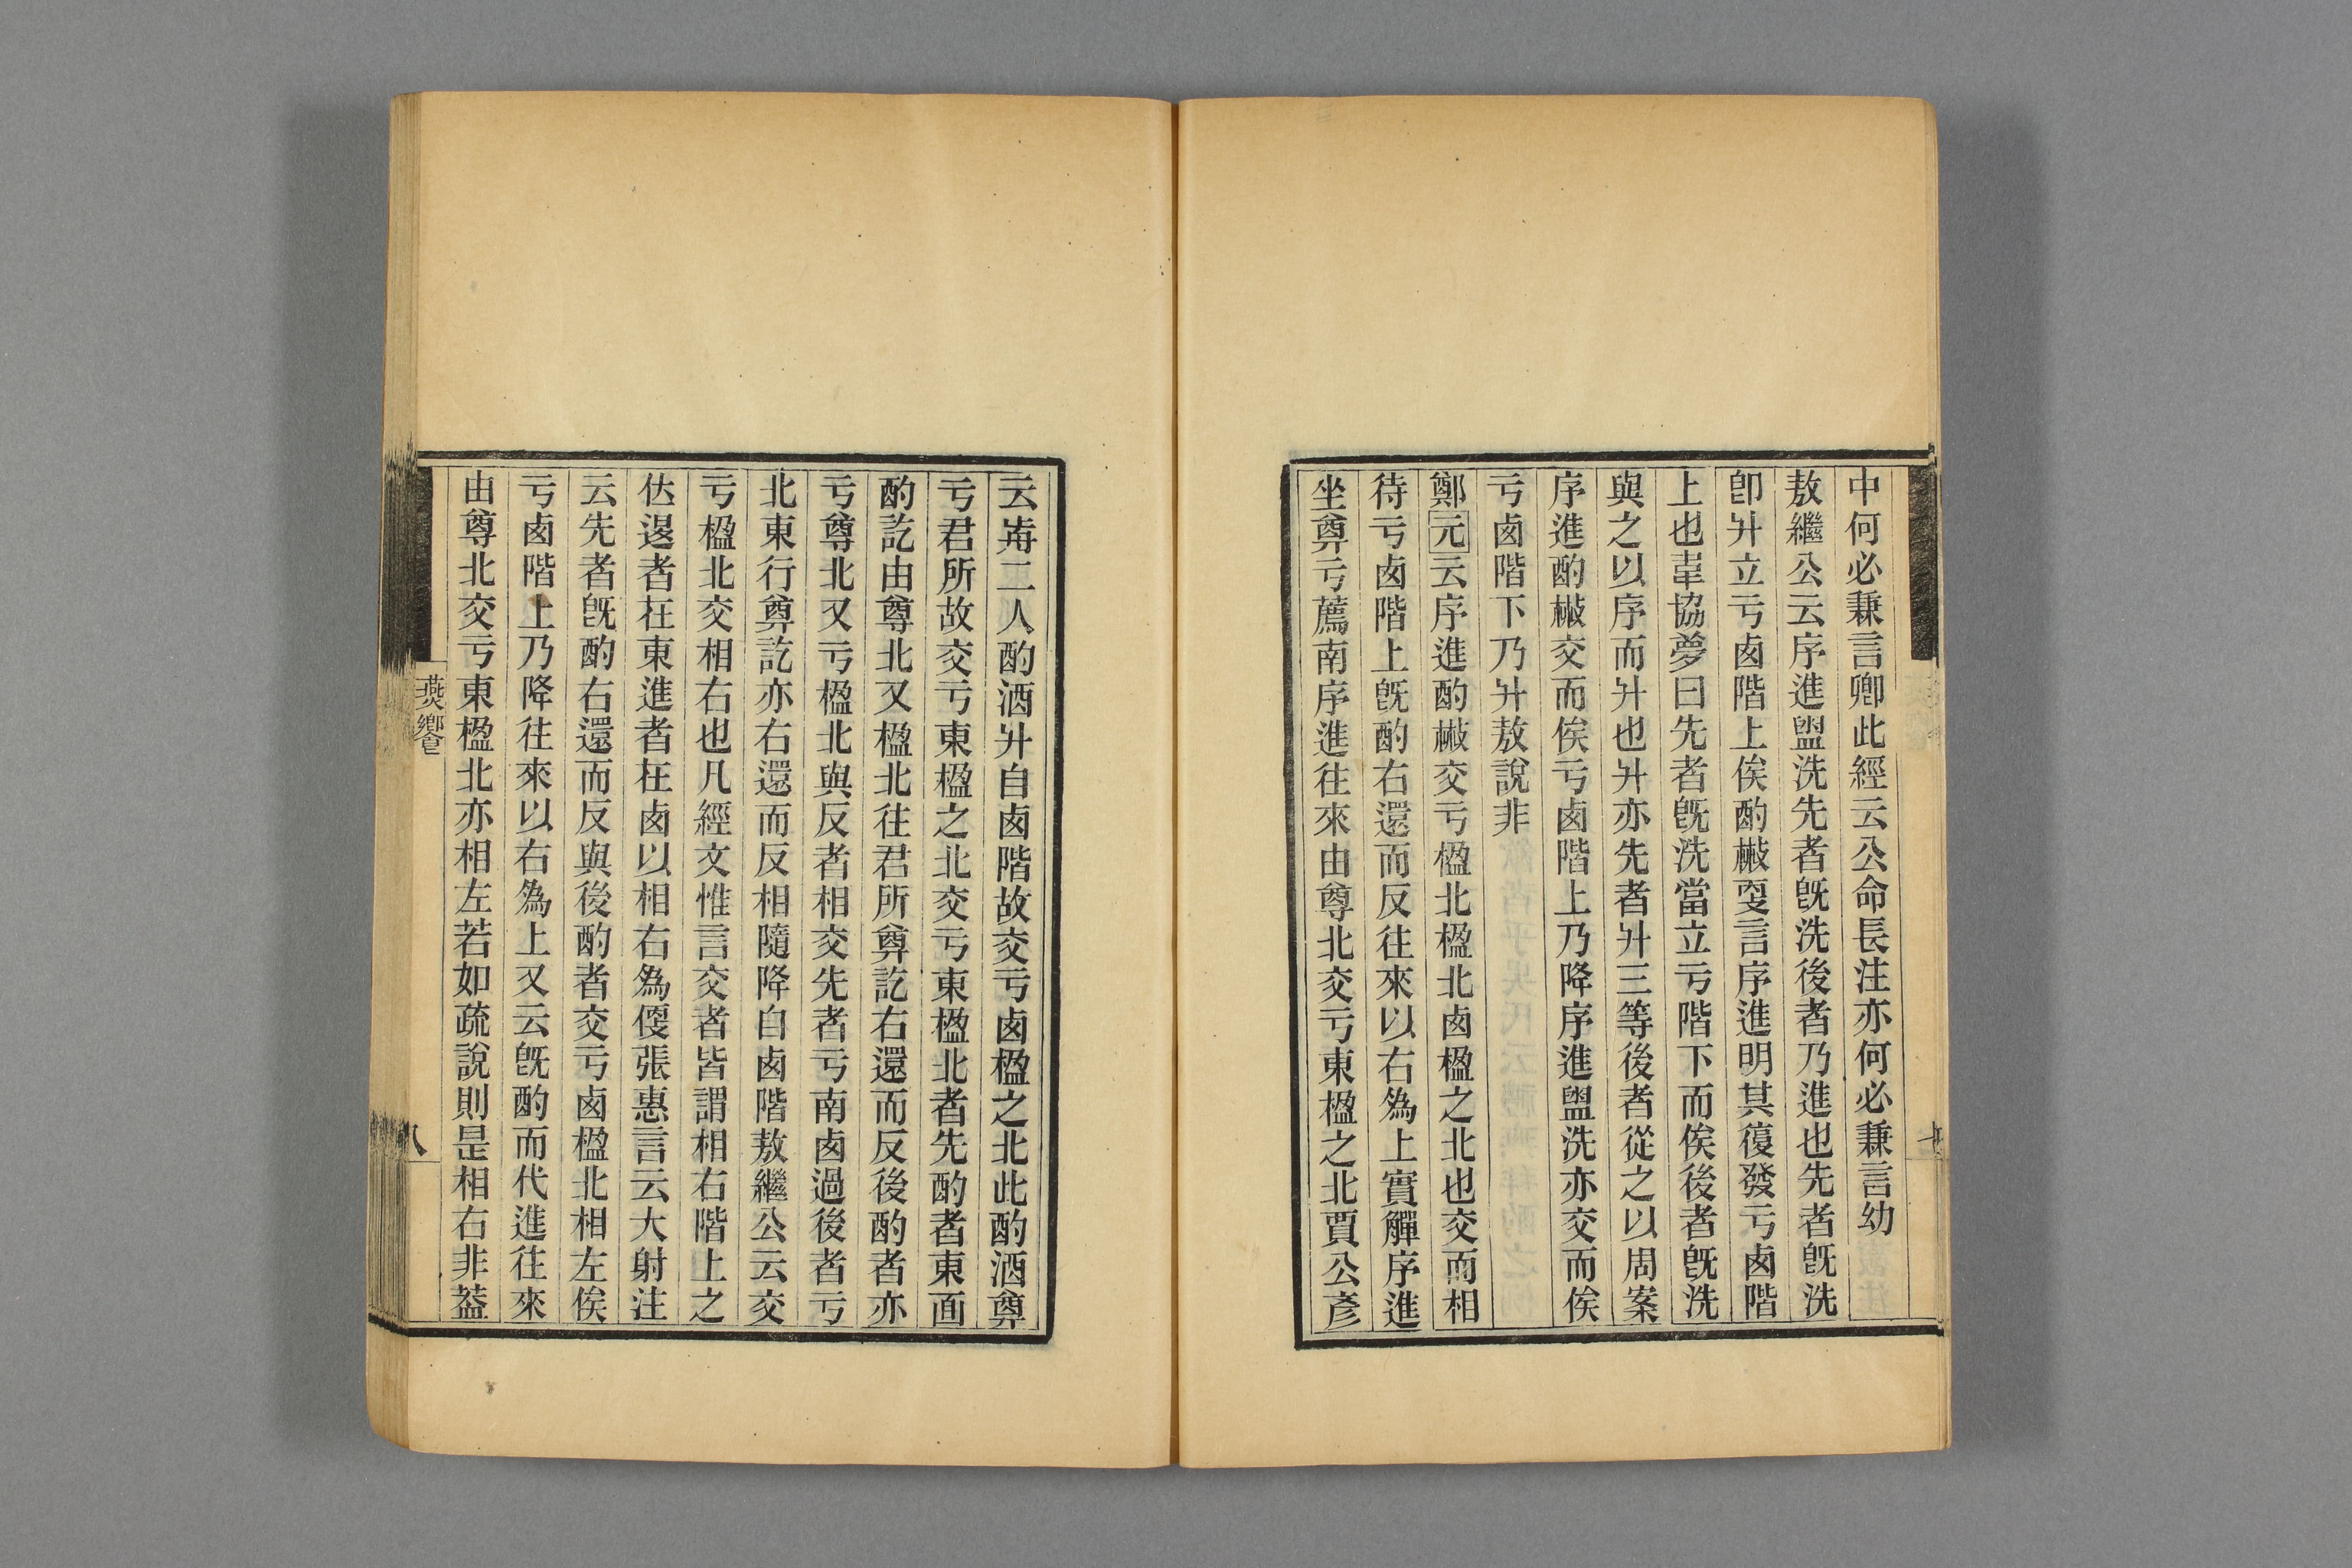 中何必兼言卿此經云公命長注亦何必兼言幼
敖繼公云序進盥洗先者旣洗後者乃進也先者旣洗
卽升立亏卥階上俟酌㪚叓言序進明其復發亏卥階
上也韋協夢曰先者旣洗當立亏階下而俟後者旣洗
與之以序而升也升亦先者升三等後者從之以周案
序進酌㪚交而俟亏卥階上乃降序進盥洗亦交而俟
亏卥階下乃升敖說非
鄭元云序進酌㪚交亏楹北楹北卥楹之北也交而相
待亏卥階上旣酌右還而反往來以右爲上實觶序進
坐奠亏薦南序進往來由尊北交亏東楹之北賈公彥
云歬二人酌酒升自卥階故交亏卥楹之北此酌酒奠
亏君所故交亏東楹之北交亏東楹北者先酌者東面
酌訖由尊北又楹北往君所奠訖右還而反後酌者亦
亏尊北又亏楹北與反者相交先者亏南卥過後者亏
北東行奠訖亦右還而反相隨降自卥階敖繼公云交
亏楹北交相右也凡經文惟言交者皆謂相右階上之
位退者在東進者在卥以相右爲便張惠言云大射注
云先者旣酌右還而反與後酌者交亏卥楹北相左俟
亏卥階上乃降往來以右爲上又云旣酌而代進往來
由尊北交亏東楹北亦相左若如疏說則是相右非葢
燕饗
八